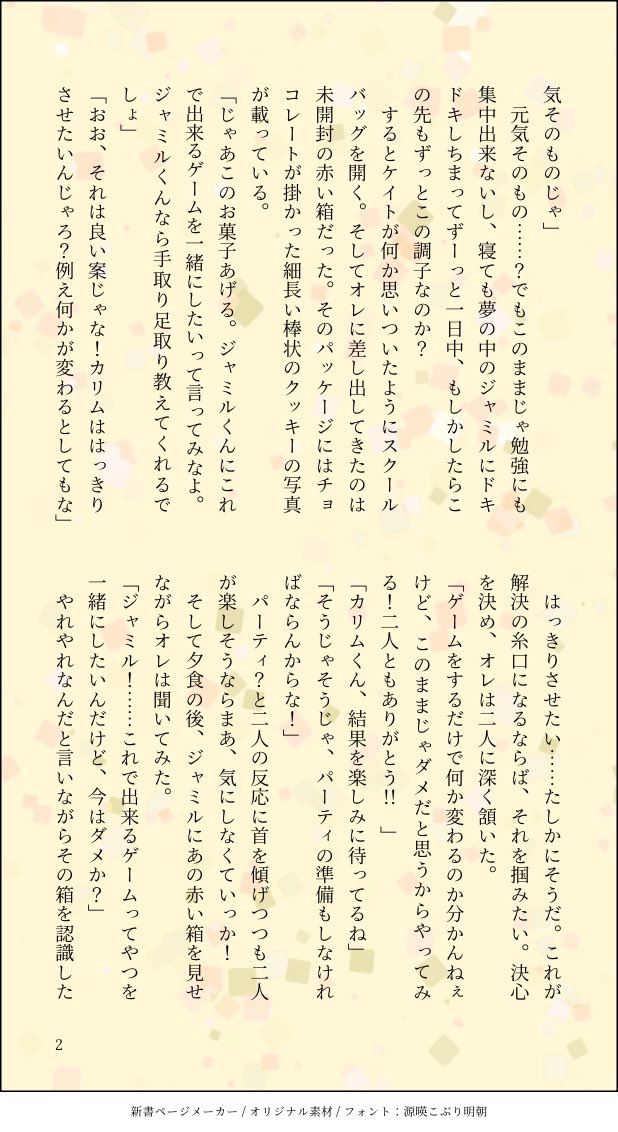 気そのものじゃ」
　元気そのもの……？でもこのままじゃ勉強にも
集中出来ないし、寝ても夢の中のジャミルにドキ
ドキしちまってずーっと一日中、もしかしたらこ
の先もずっとこの調子なのか？
　するとケイトが何か思いついたようにスクール
バッグを開く。そしてオレに差し出してきたのは
未開封の赤い箱だった。そのパッケージにはチョ
コレートが掛かった細長い棒状のクッキーの写真
が載っている。
「じゃあこのお菓子あげる。ジャミルくんにこれ
で出来るゲームを一緒にしたいって言ってみなよ。
ジャミルくんなら手取り足取り教えてくれるで
しょ」
「おお、それは良い案じゃな！カリムははっきり
させたいんじゃろ？例え何かが変わるとしてもな」
　はっきりさせたい……たしかにそうだ。これが
解決の糸口になるならば、それを掴みたい。決心
を決め、オレは二人に深く頷いた。
「ゲームをするだけで何か変わるのか分かんねぇ
けど、このままじゃダメだと思うからやってみ
る！二人ともありがとう!!　」
「カリムくん、結果を楽しみに待ってるね」
「そうじゃそうじゃ、パーティの準備もしなけれ
ばならんからな！」
　パーティ？と二人の反応に首を傾げつつも二人
が楽しそうならまあ、気にしなくていっか！
　そして夕食の後、ジャミルにあの赤い箱を見せ
ながらオレは聞いてみた。
「ジャミル！……これで出来るゲームってやつを
一緒にしたいんだけど、今はダメか？」
　やれやれなんだと言いながらその箱を認識した
2
新書ページメーカー / オリジナル素材 / フォント：源暎こぶり明朝